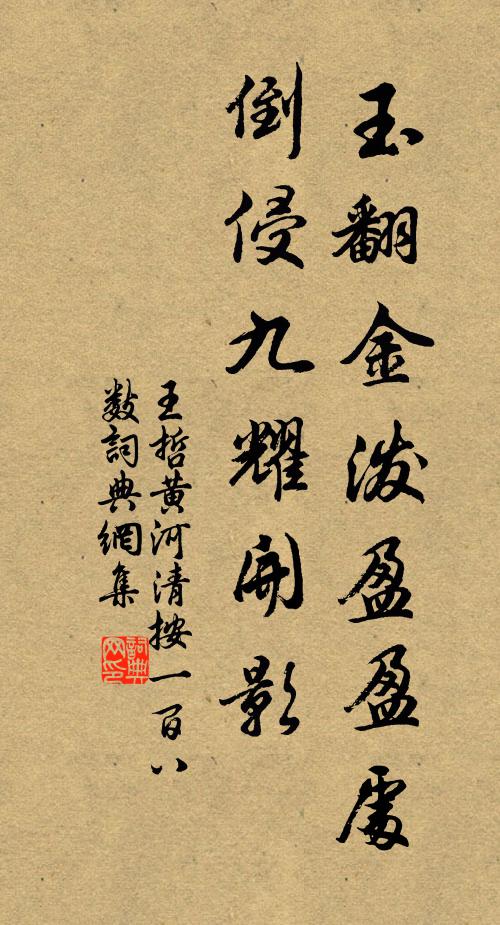 玉翻金潑盈盈處
倒侵九耀開影
王哲黃河清按一百八
數詞典網集
詞典網印